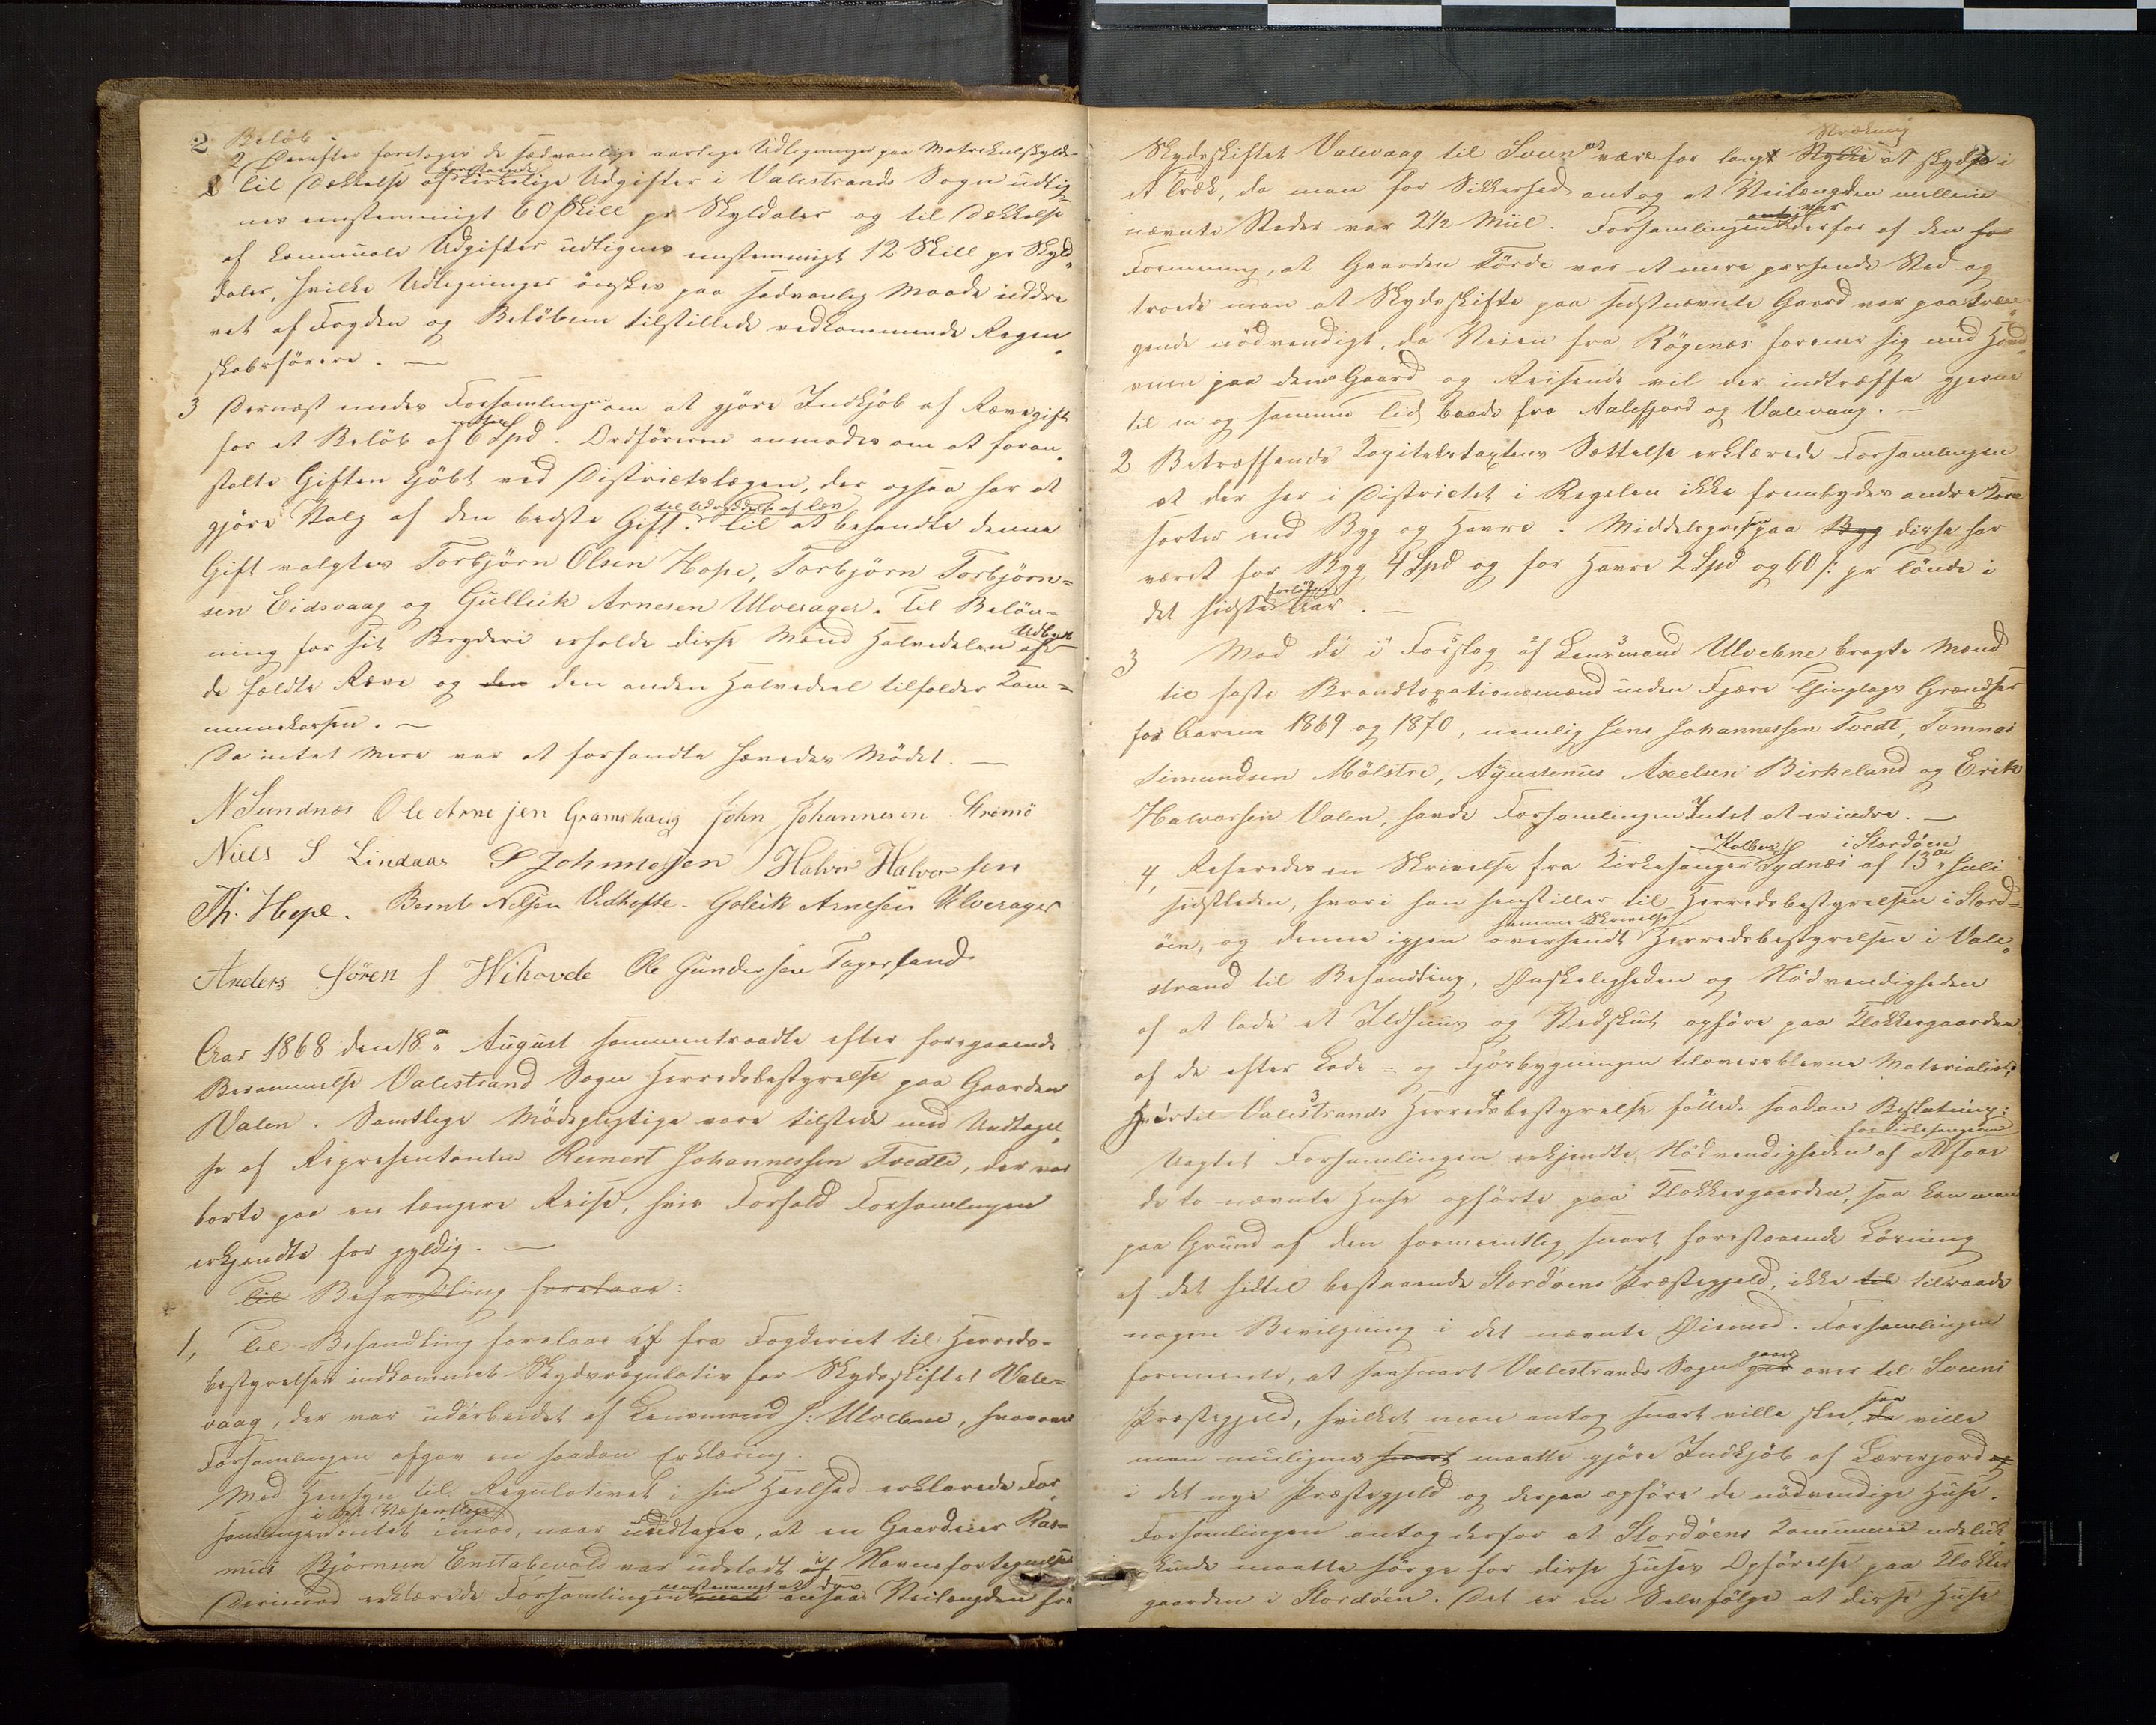 2 Beløb
2 Derefter foretoges de sædvanlige aarlige Udligninger paa Matrikulskyld-
Til Dækkelse af kirkelige Udgifter i Valestrands Sogn udlig-
nes enstemmigt 60 Skill pr Skyldaler og til Dækkelse
af kommunale Udgifter udlignes enstemmigt 12 Skill pr Skyld„
daler, hvilke Udligninger ønskes paa sædvanlig Maade inddre
vet af Fogden og Beløbene tilstillede vedkommende Regn„
skabsførere. —
3 Dernæst enedes Forsamlingen om at gjøre Indkjøb af Rævegift
for et Beløb af 6 Spd. Ordføreren anmodes om at foran„
stalte Giften kjøbt ved Districtslægen, der ogsaa har at
gjøre Valg af den bedste Gift. Til at behandle denne
Gift valgtes Torbjörn Olsen Hope, Torbjörn Torbjörn=
sen Eidsvaag og Gulleik Arnesen Ulverager. Til Beløn=
ning for sit Bryderi erholde disse Mænd Halvdelen af Udbyt
de fældte Ræve og den den anden Halvdeel tilfalder Kom=
munekassen. —
Da intet Mere var at forhandle hævedes Mødet. —
N Sundnæs Ole Arnesen Gramshaug John Johannesen Strömö
Niels S Lindaas S Johnnesen Halvor Halvorsen
Th. Hope. Bernt Nilsen Vedhofte. Goleik Arnesen Ulverager
Anders Sören S Wihovde Ole Gundersen Tagesland
Aar 1868 den 18de August sammentraadte efter foregaaende
Berammelse Valestrand Sogns Herredsbestyrelse paa Gaarden
Valen. Samtlige Mødepligtige vare tilstede med Undtagel„
se af Repræsentanten Reinert Johannessen Tvedte, der var
borte paa en længere Reise, hvis Forfald Forsamlingen
erkjendte for gyldig. —
Til Behandling forelaae:
1, Til Behandling forelaae et fra Fogderiet til Herreds-
bestyrelsen indkommet Skydsregulativ for Skydsskiftet Vale=
vaag, der var udarbeidet af Lensmand J: Ulvebne, hvorover
Forsamlingen afgav en saadan Erklæring.
Med Hensyn til Regulativet i sin Heelhed erklærede For„
samlingen intet i det Væsentlige imod, naar undtages, at en Gaardeier Ras-
mus Björnsen Enstabevold var udeladt af Navnefortegnelsen
Derimod erklærede Forsamlingen enstemmigt at den ansaa Veilengden fra
Skydsskiftet Valevaag til Sveen at være for langt Stykke Strækning at skydse i
et Træk, da man for Sikkerhed antog at Veilængden mellem
nævnte Steder var 2 1/2 Miil. Forsamlingen var derfor af den
Formening, at Gaarden Förde var et mere passende Sted og
troede man at Skydsskifte paa sidstnævnte Gaard var paatræn„
gende nødvendigt, da Veien fra Rögenæs forener sig med Hoved„
veien paa denne Gaard og Reisende vil der indtræffe gjerne
til en og samme Tid baade fra Aalefjord og Valevaag. —
2 Betræffende Kapitelstaxtens Sættelse erklærede Forsamlingen
at der her i Districtet i Regelen ikke frembydes andre Korn
sorter end Byg og Havre. Middelprisen paa Byg disse har
været for Byg 4 Spd og for Havre 2 Spd og 60 s: pr Tønde i
det sidste forløbne Aar. —
3 Mod de i Forslag af Lensmand Ulvebne bragte Mænd
til faste Brandtaxationsmænd inden Fjære Thinglags Grændser
for Aarene 1869 og 1870, nemlig Jens Johannessen Tvedt, Tomnas
Simundsen Mölstre, Agustinus Axelsen Birkeland og Erik
Halvorsen Valen, havde Forsamlingen Intet at erindre. —
4, Refereredes en Skrivelse fra Kirkesanger Kolben Sydnæs i Stordøen af 13de Juli
sidstleden, hvori han henstiller til Herredsbestyrelsen i Stord=
øen, og denne igjen oversendt samme Skrivelse Herredsbestyrelsen i Vale„
strand til Behandling, Ønskeligheden og Nødvendigheden
af at lade et Ildhuus og Vedskut opføre paa Klokkergaarden
af de efter Lade- og Fjøsbygningen tiloversblevne Materialier,
Hvortil Valestrands Herredsbestyrelse fattede saadan Beslutning:
Uagtet Forsamlingen erkjendte Nødvendigheden af for Kirkesangeren at faae
de to nævnte Huse opførte paa Klokkergaarden, saa kan man
paa Grund af den formeentlig snart forestaaende Løsning
af det hidtil bestaaende Stordøens Præstegjeld, ikke til tilraade
nogen Bevilgning i det nævnte Øiemed. Forsamlingen
formeente, at saasnart Valestrands Sogn gaaer over til Sveens
Præstegjeld, hvilket man antog snart ville skee, saa ville
man muligens snart maatte gjøre Indkjøb af Lærerjord
i det nye Præstegjeld og derpaa opføre de nødvendige Huse.
Forsamlingen antog derfor at Stordøens Kommune udeluk
kende maatte sørge for disse Huses Opførelse paa Klokker
gaarden i Stordøen. Det er en Selvfølge at disse Huse